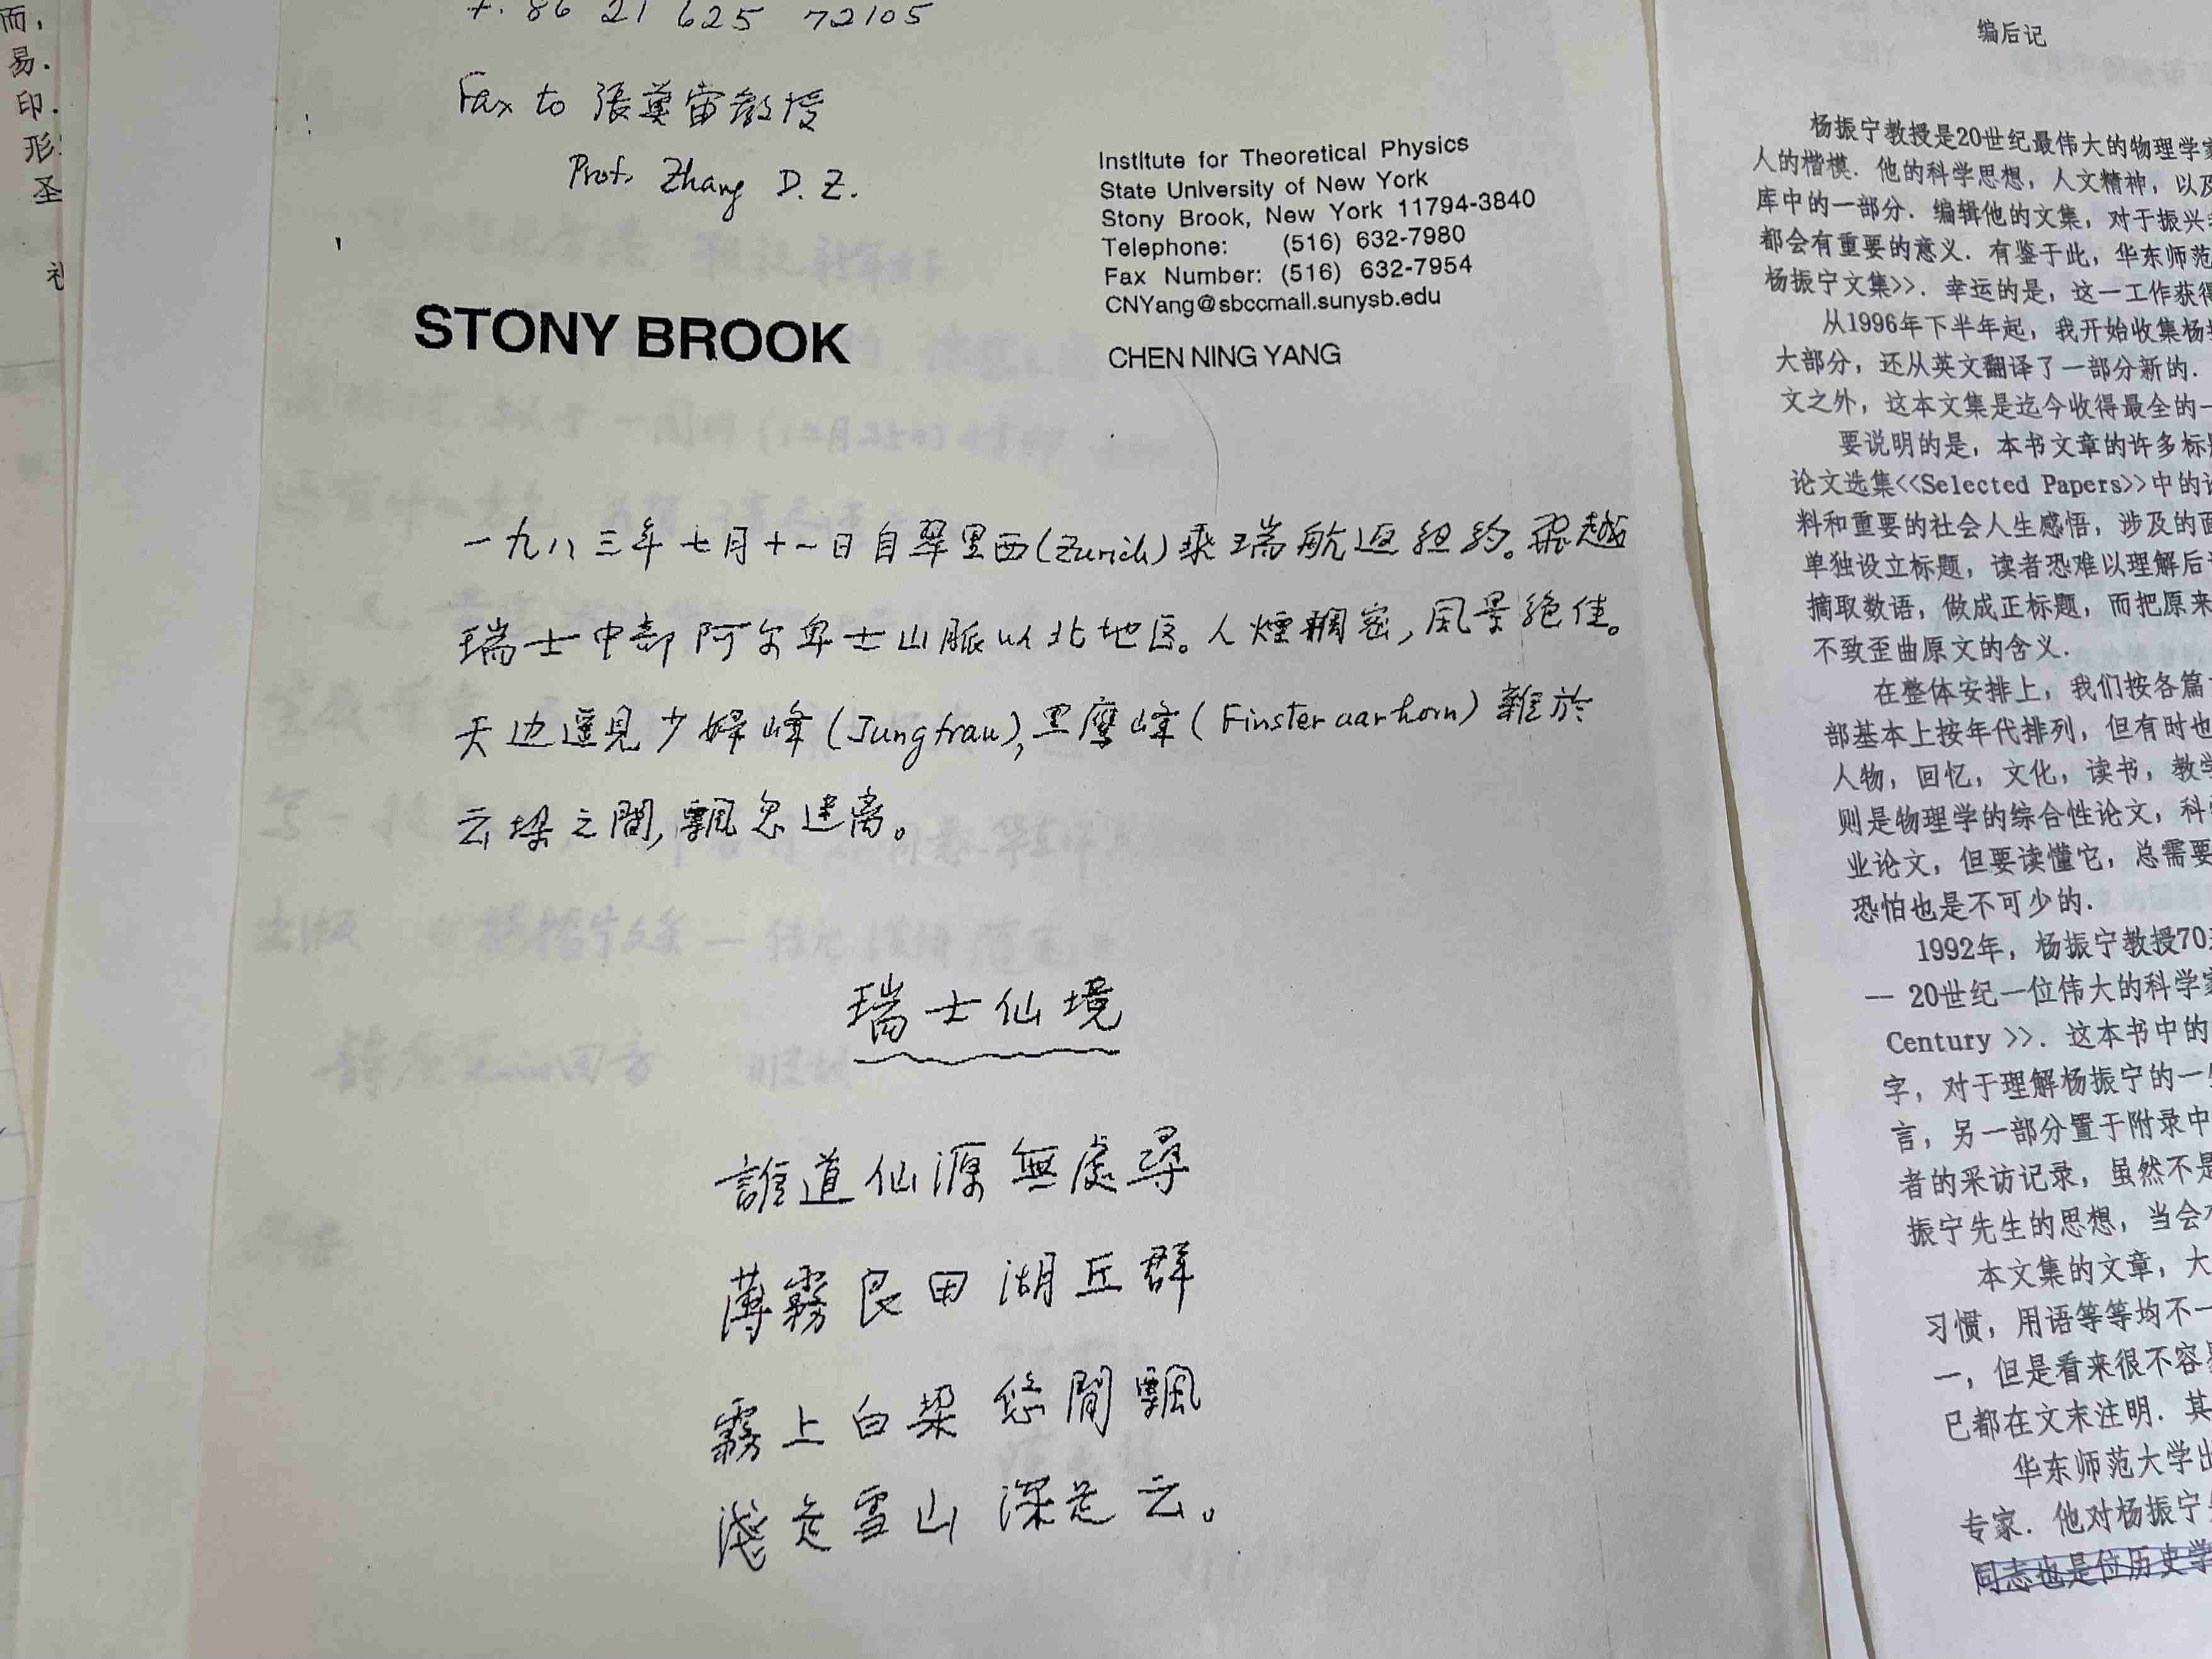 而，
易．
印．
形
圣
f. 86 21 625 72105
Fax to 張奠宙教授
Prof. Zhang D. Z.
Institute for Theoretical Physics
State University of New York
Stony Brook, New York 11794-3840
Telephone: (516) 632-7980
Fax Number: (516) 632-7954
CNYang@sbccmail.sunysb.edu
STONY BROOK
CHEN NING YANG
一九八三年七月十一日自翠里西(Zurich)乘瑞航返紐約。飛越
瑞士中部阿尔卑士山脈以北地区。人煙稠密，風景絕佳。
天边遥見少婦峰(Jungfrau),黑鹰峰(Finsteraarhorn)雜於
云堞之間,飄忽迷离。
瑞士仙境
誰道仙源無處尋
薄霧良田湖丘群
霧上白梁悠閒飄
淺是雪山深是云。
编后记
杨振宁教授是20世纪最伟大的物理学家
人的楷模．他的科学思想，人文精神，以及
库中的一部分．编辑他的文集，对于振兴
都会有重要的意义．有鉴于此，华东师范
杨振宁文集>>．幸运的是，这一工作获得
从1996年下半年起，我开始收集杨
大部分，还从英文翻译了一部分新的．
文之外，这本文集是迄今收得最全的一
要说明的是，本书文章的许多标
论文选集<<Selected Papers>>中的
料和重要的社会人生感悟，涉及的面
单独设立标题，读者恐难以理解后
摘取数语，做成正标题，而把原来
不致歪曲原文的含义．
在整体安排上，我们按各篇
部基本上按年代排列，但有时也
人物，回忆，文化，读书，教学
则是物理学的综合性论文，科
业论文，但要读懂它，总需要
恐怕也是不可少的．
1992年，杨振宁教授70
— 20世纪一位伟大的科学家
Century >>．这本书中的
字，对于理解杨振宁的一
言，另一部分置于附录中
者的采访记录，虽然不是
振宁先生的思想，当会
本文集的文章，大
习惯，用语等等均不一
一，但是看来很不容易
已都在文末注明．其
华东师范大学出
专家．他对杨振宁
同志也是位历史学